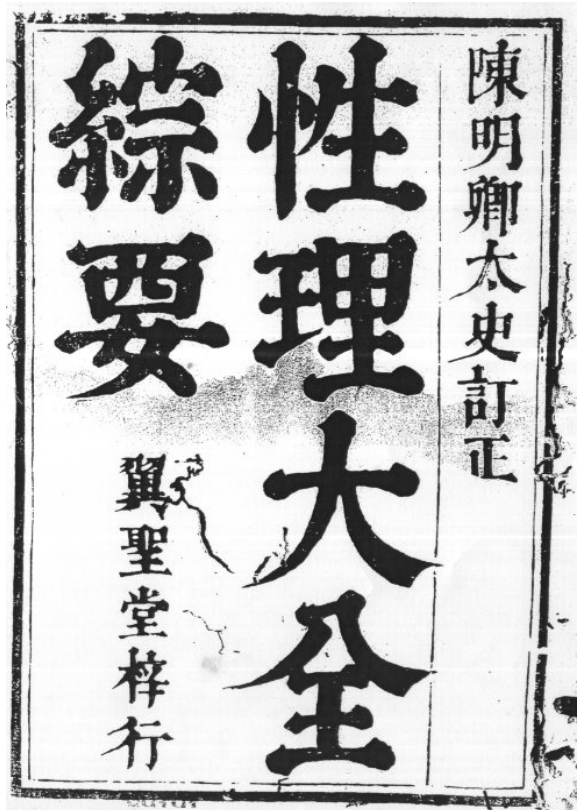 陳明卿太史訂正
性理大全
綜要
翼聖堂梓行